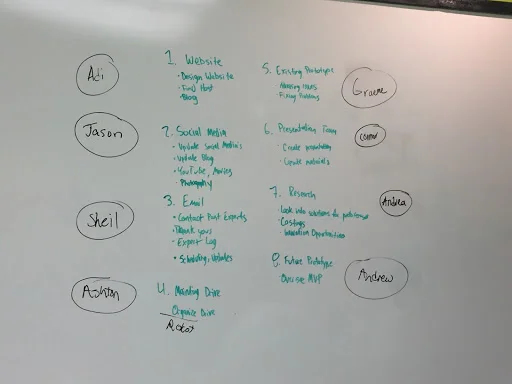 Adi
1. Website
• Design Website
• Find Host
• Blog
Jason
2. Social Media
• Update Social Media's
• Update Blog
• YouTube, Movies
• Photography
Sheil
3. Email
• Contact Past Experts
Thank you's
• Expert Log
• Scheduling, Updates
Ashton
4. Maintaing Drive
Organize Drive
Robot
5. Existing Prototype
Fixing Problems
Graeme
6. Presentation Team
• Create presentation
• Create materials
Connor
7. Research
• Look into solutions for
• Costings
• Opportunities
Andrea
8. Future Prototype
MVP
Andrew